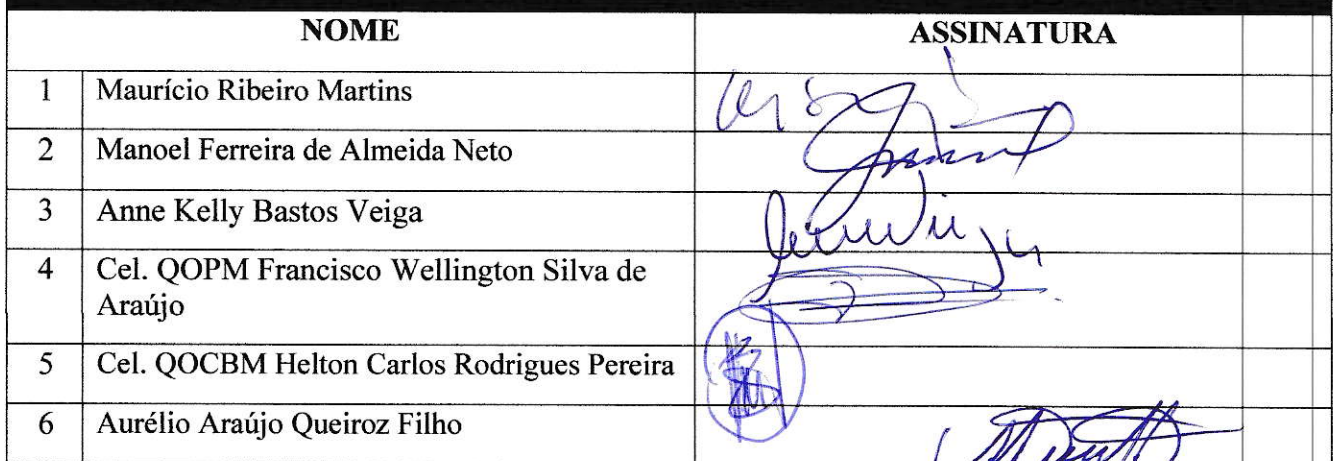 NOME ASSINATURA
1 Maurício Ribeiro Martins
2 Manoel Ferreira de Almeida Neto
3 Anne Kelly Bastos Veiga
4 Cel. QOPM Francisco Wellington Silva de
Araújo
5 Cel. QOCBM Helton Carlos Rodrigues Pereira
6 Aurélio Araújo Queiroz Filho